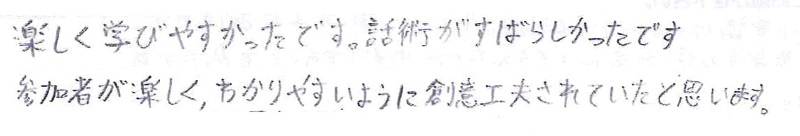 楽しく学びやすかったです。話術がすばらしかったです
参加者が楽しく,わかりやすいように創意工夫されていたと思います。